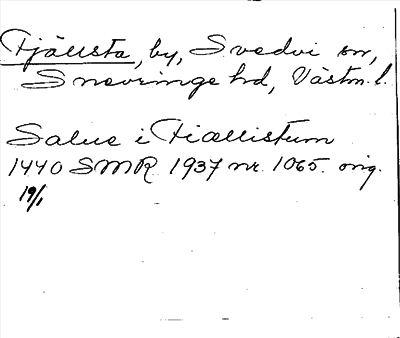 Fjällsta, by, Svedvi sn,
Snevringe hd, Västm. l.
Salue i Fiællistum
1440 SMR 1937 nr. 1065. orig.
19/1